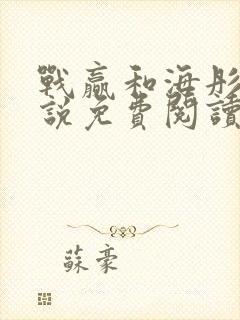 戰贏和海彤
說免費閱讀
蘇豪